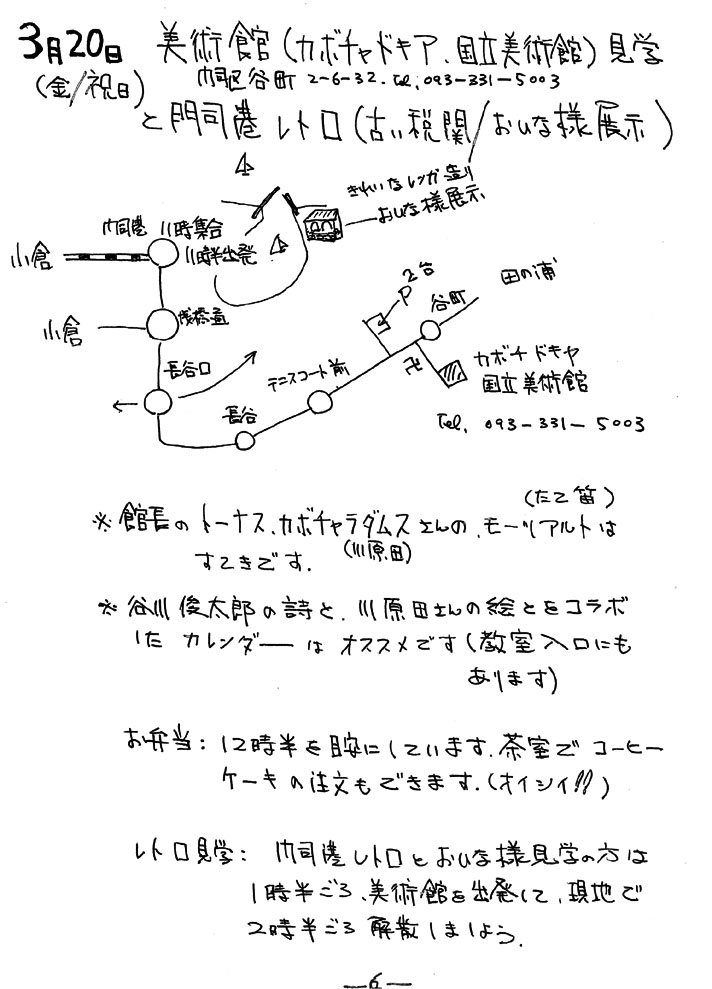 3月20日 美術館(カボチャドキア、国立美術館)見学
(金/祝日) 門司区谷町 2-6-32. Tel. 093-331-5003
と門司港レトロ(古い税関/おひな様展示)
きれいなレンガ造り
おひな様展示
門司港 11時集合
11時半出発
小倉
2台
P
谷町
田の浦
小倉
桟橋通
カボチドキヤ
国立美術館
卍
長谷口
テニスコート前
長谷
Tel. 093-331-5003
(たて笛)
※館長のトーナス、カボチャラダムスさんの、モーツアルトは
(川原田)
すてきです.
※谷川俊太郎の詩と、川原田さんの絵とをコラボ
した カレンダーは オススメです(教室入口にも
あります)
お弁当: 12時半を目安にしています. 茶室で コーヒー
ケーキの注文もできます.(オイシイ!!)
レトロ見学: 門司港レトロとおひな様見学の方は
1時半ごろ、美術館を出発して、現地で
2時半ごろ 解散しましょう.
—6—